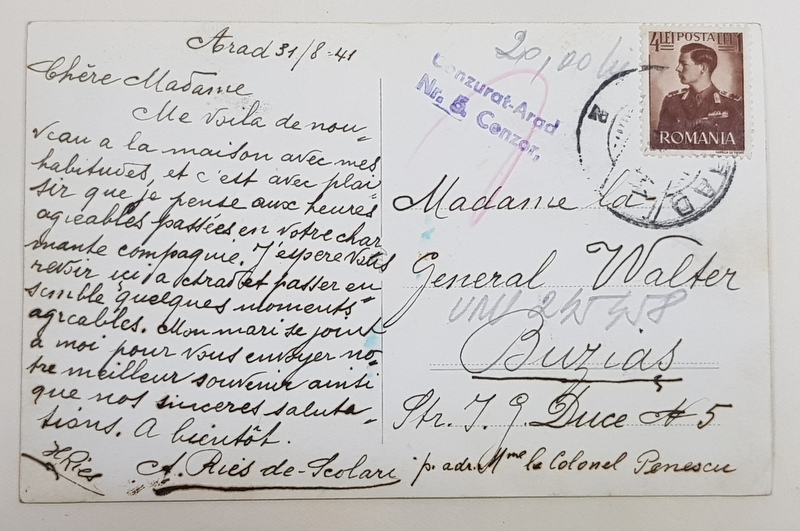 Arad 31/8-41
Chère Madame
Me voila de nou-
veau a la maison avec mes
habitudes, et c'est avec plai
sir que je pense aux heures
agréables passées en votre char
mante compagnie. J'espère vous
revoir ici a Arad et passer en-
semble quelques moments
agréables. Mon mari se joint
a moi pour vous envoyer no-
tre meilleur souvenir ainsi
que nos sincères saluta-
tions. A bientôt.
Ries
A. Ries de-Scolari
20,00 lei
Cenzurat-Arad
Nr. 5. Cenzor,
4 LEI POSTA LEI 4
ROMANIA
ARAD
41
Madame la
General Walter
Buziaş
Str. I. G. Duca № 5
p. adr. Mme la Colonel Penescu